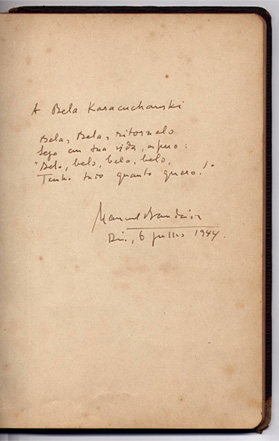 A Bela Karacuchanski
Bela, Bela, ritornelo
Seja em tua vida, espero:
"Belo, belo, belo, belo,
Tenho tudo quanto quero!"
Manuel Bandeira
Rio, 6 julho 1944.